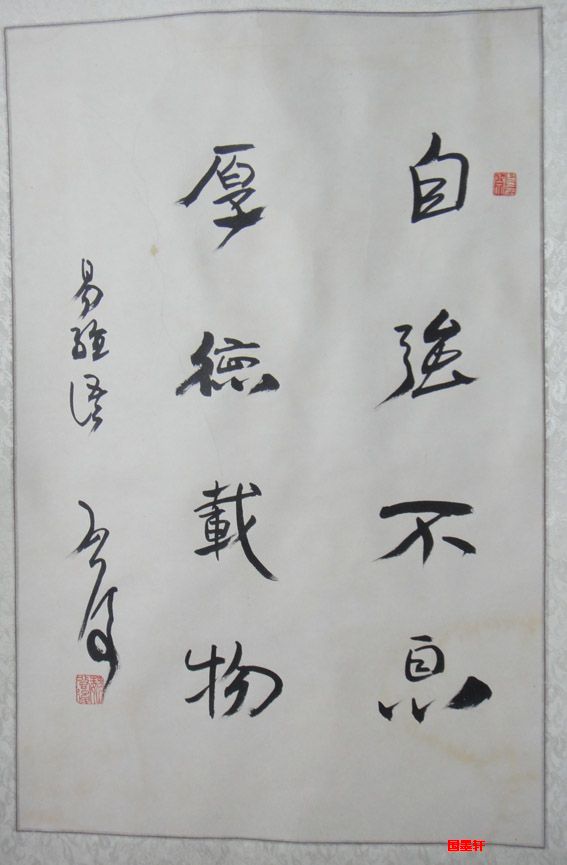 自強不息
厚德載物
易經語
国墨轩